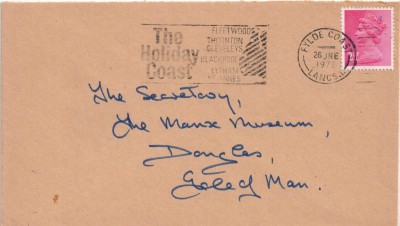 The
Holiday
Coast
FLEETWOOD
THORNTON
CLEVELEYS
BLACKPOOL
LYTHAM
FYLDE COAST
26 JNE
197
LANCS.
The Secretary,
The Manx Museum,
Douglas,
Isle of Man.